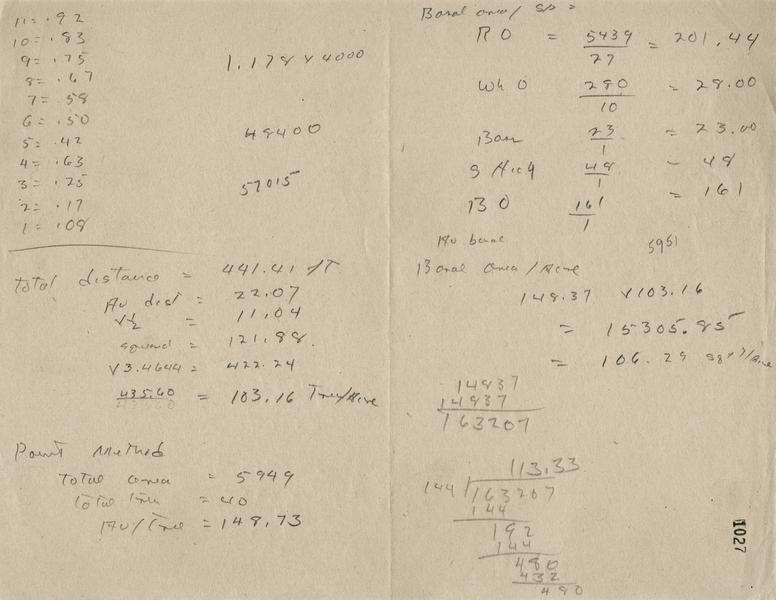 11 = .92
10 = .83
9 = .75
8 = .67
7 = .58
6 = .50
5 = .42
4 = .63
3 = .25
2 = .17
1 = .08
1.178 x 4000
48400
57015
Total distance = 441.41 FT
Av dist = 22.07
x ½ = 11.04
squared = 121.88.
x 3.4644 = 422.24
435.60 = 103.16 Tree/Acre
Point Method
Total area = 5949
Total tree = 40
Av/Tree = 148.73
Basal area/ sp =
RO = 5439 = 201.44
27
Wh O 280 = 28.00
10
23 = 23.00
1
S Hick 48 = 48
1
BO 161 = 161
1
Av basal 5951
Basal area/Acre
148.37 x 103.16
= 15305.85
= 106.29 sq ft/Acre
14837
14837
163207
113.33
144 163207
144
192
144
480
432
480
1027